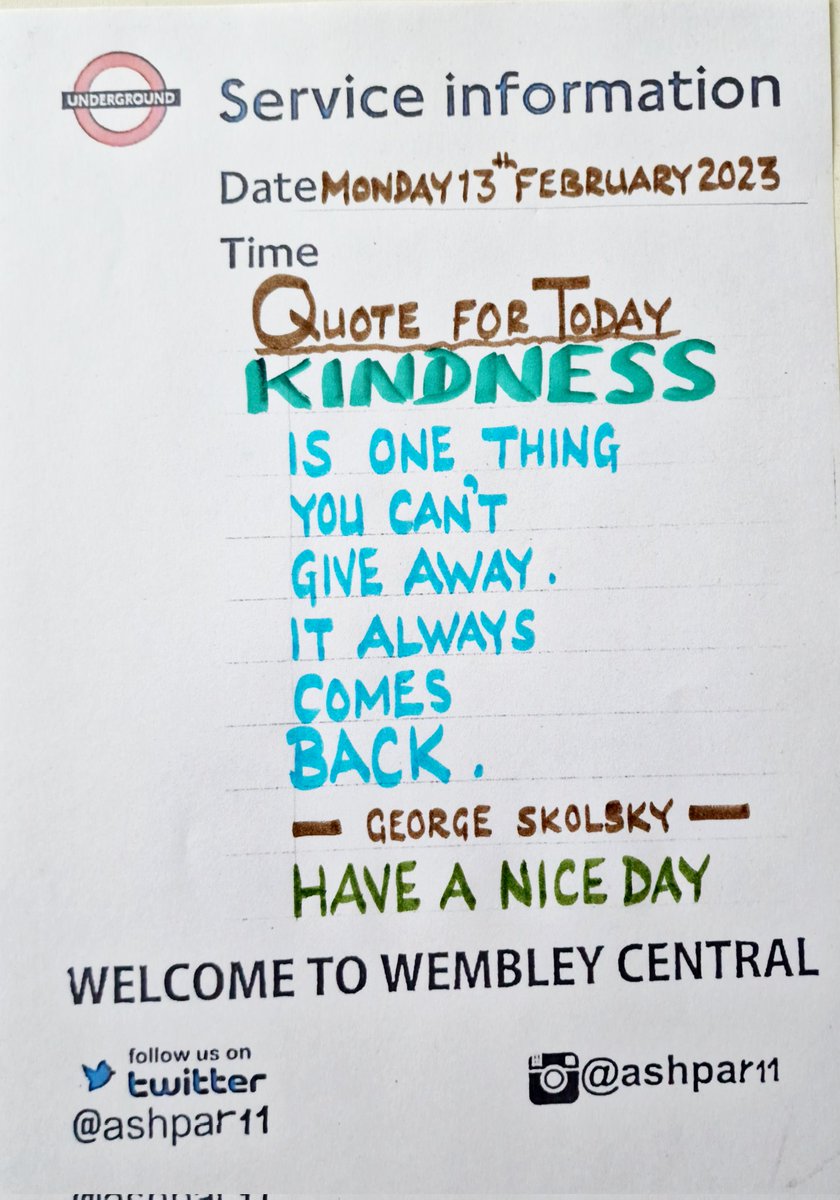 UNDERGROUND
Service information
Date MONDAY 13th FEBRUARY 2023
Time
QUOTE FOR TODAY
KINDNESS
IS ONE THING
YOU CAN'T
GIVE AWAY.
IT ALWAYS
COMES
BACK.
— GEORGE SKOLSKY —
HAVE A NICE DAY
WELCOME TO WEMBLEY CENTRAL
follow us on
twitter
@ashpar11
@ashpar11